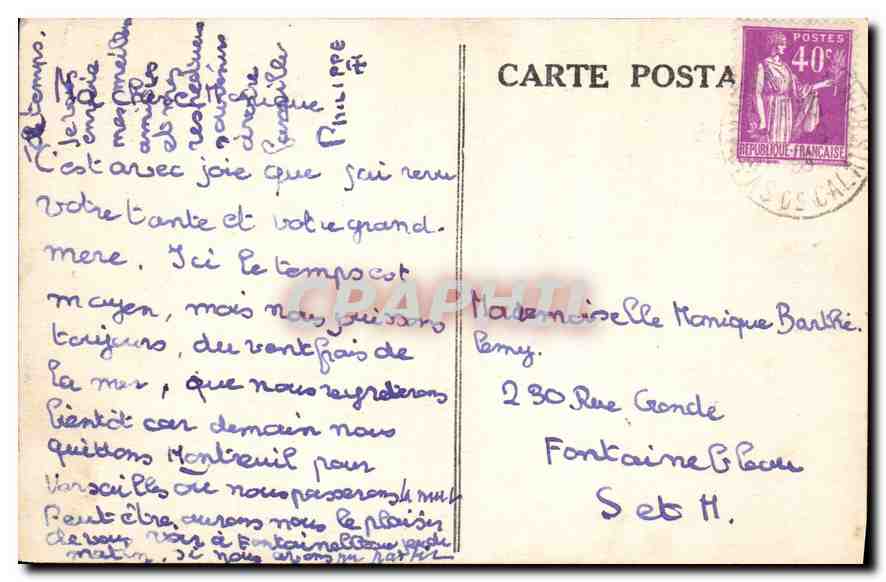 Ma chère Monique
C'est avec joie que j'ai revu
votre tante et votre grand-
mère. Ici le temps est
moyen, mais nous jouissons
toujours, du vent frais de
la mer, que nous regretterons
bientôt car demain nous
quittons Montreuil pour
Versailles où nous passerons 4 nuits
Peut être aurons nous le plaisir
de vous voir à Fontainebleau
matin, si nous avons pu partir
à temps.
Je vous
envoie
mes meilleures
amitiés
PHILIPPE
CARTE POSTA
POSTES
40c
REPUBLIQUE-FRANÇAISE
PAS DE CALAIS
CPAPHIL
Mademoiselle Monique Barthé-
lemy.
230 Rue Grande
Fontainebleau
S et M.